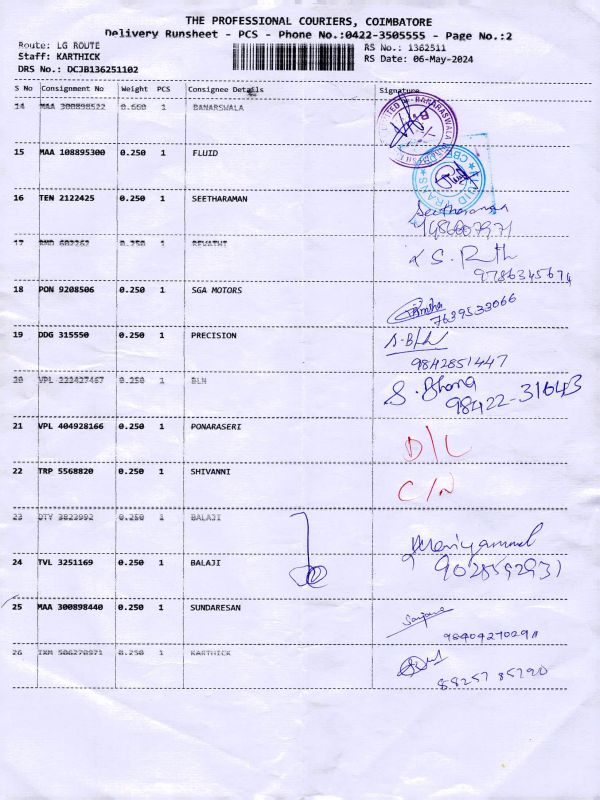 THE PROFESSIONAL COURIERS, COIMBATORE
Delivery Runsheet - PCS - Phone No.:0422-3505555 - Page No.:2
Route: LG ROUTE
Staff: KARTHICK
DRS No.: DCJB136251102
RS No.: 1362511
RS Date: 06-May-2024
S No Consignment No Weight PCS Consignee Details Signature
14 MAA 300898522 0.660 1 BANARSWALA
15 MAA 108895300 0.250 1 FLUID
16 TEN 2122425 0.250 1 SEETHARAMAN Seetharaman
17 0.250 1 REVATHI S. Rth
9786345674
18 PON 9208506 0.250 1 SGA MOTORS
7639533066
19 DDG 315550 0.250 1 PRECISION
9842851447
20 VPL 222427467 0.250 1 BLN S. Bhana
98422-31643
21 VPL 404928166 0.250 1 PONARASERI D/L
22 TRP 5568820 0.250 1 SHIVANNI C/N
23 DTY 3823992 0.250 1 BALAJI
24 TVL 3251169 0.250 1 BALAJI Mariyammal
9028592931
25 MAA 300898440 0.250 1 SUNDARESAN
26 IXM 506270971 0.250 1 KARTHICK
88257 85290